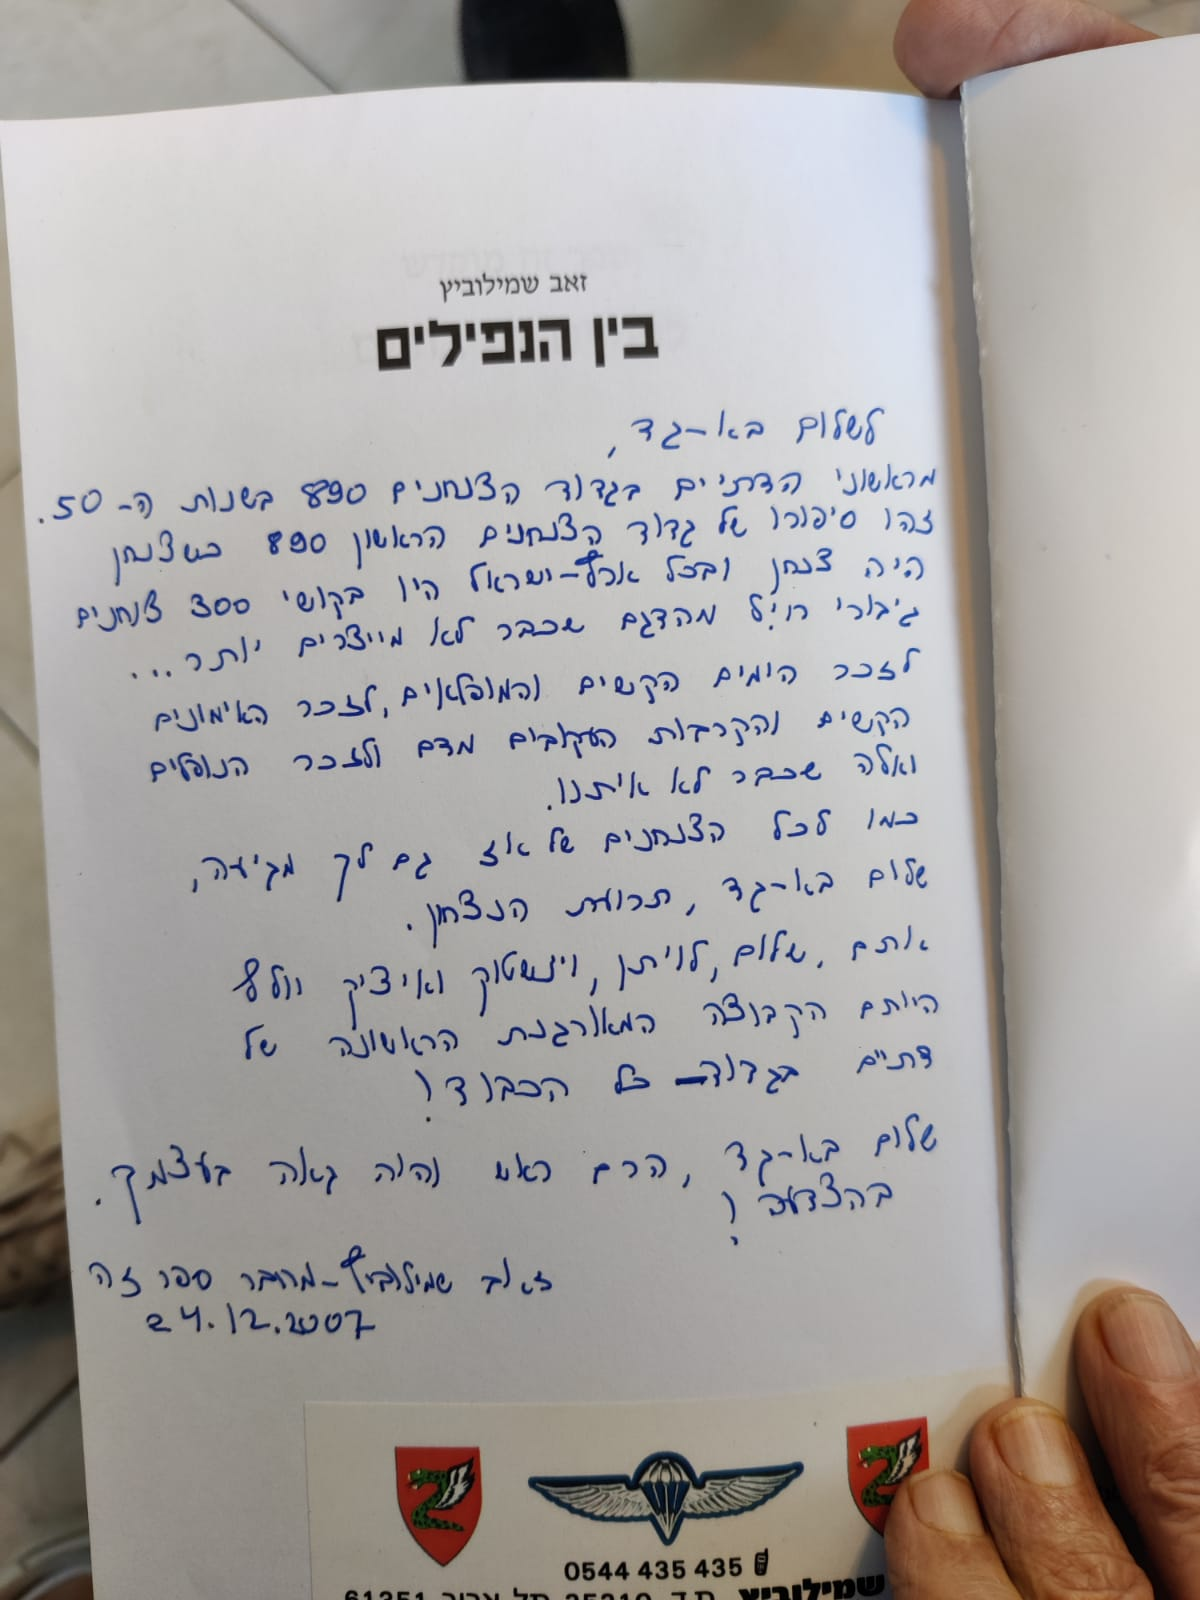 זאב שמילוביץ
בין הנפילים
לשלום בא-גד,
מראשוני הדתיים בגדוד הצנחנים 890 בשנות ה-50.
זהו סיפורו של גדוד הצנחנים הראשון 890 כשצנחן
היה צנחן ובכל ארץ-ישראל היו בקושי 300 צנחנים
גיבורי חיל מהדגם שכבר לא מייצרים יותר...
לזכר הימים הקשים והמופלאים, לזכר האימונים
הקשים והקרבות העקובים מדם ולזכר הנופלים
ואלה שכבר לא איתנו.
כמו לכל הצנחנים של אז גם לך מגיעה,
שלום בא-גד, תרועת הנצחון.
אתם, שלום, לויתן, וינשטוק ואיציק וולף
הייתם הקבוצה המאורגנת הראשונה של
דתיים בגדוד - כל הכבוד!
שלום בא-גד, הרם ראש והיה גאה בעצמך.
בהצדעה!
זאב שמילוביץ - מחבר ספר זה
24.12.2007
0544 435 435
שמילוביץ ת.ד. 25210 תל אביב 61251